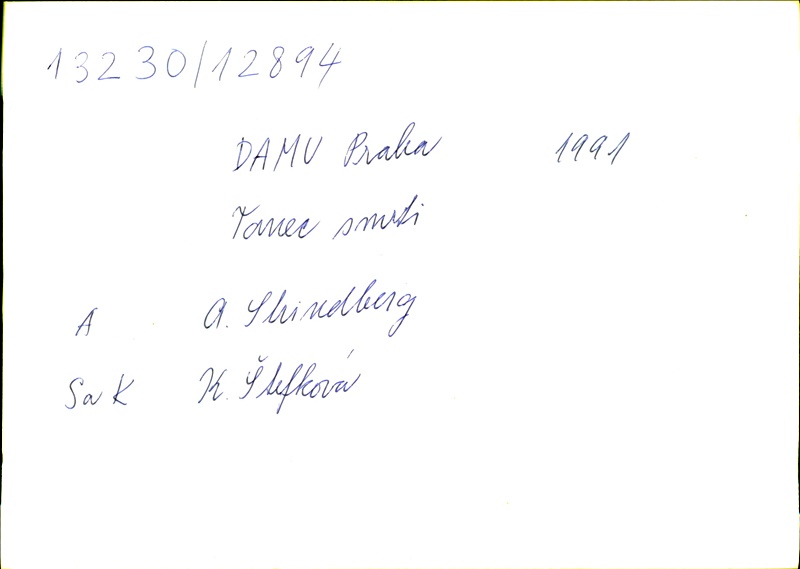 13230/12894
DAMU Praha 1991
Tanec smrti
A A. Strindberg
S a K K. Štefková